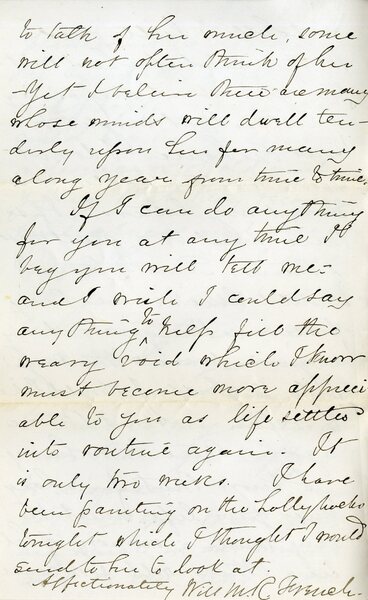 to talk of her much, some
will not often think of her
- Yet I believe there are many
whose minds will dwell ten-
derly upon her for many
a long year from time to time.
If I can do anything
for you at any time I
beg you will tell me-
and I wish I could say
anything to help fill the
weary void which I know
must become more appreci
able to you as life settles
into routine again. It
is only two weeks. I have
been painting on the hollyhocks
tonight which I thought I would
send to her to look at.
Affectionately Will M. R. French.